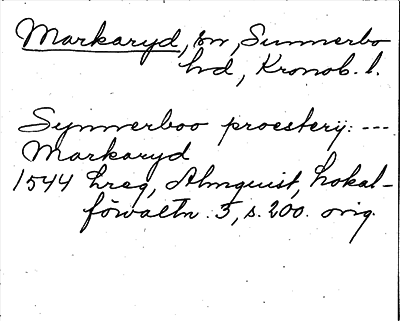 Markaryd, sn, Sunnerbo
hd, Kronob. l.
Synnerboo proesterij: ---
Markaryd
1544 hreg, Almquist, Lokal-
förvaltn. 5, s. 200. orig.